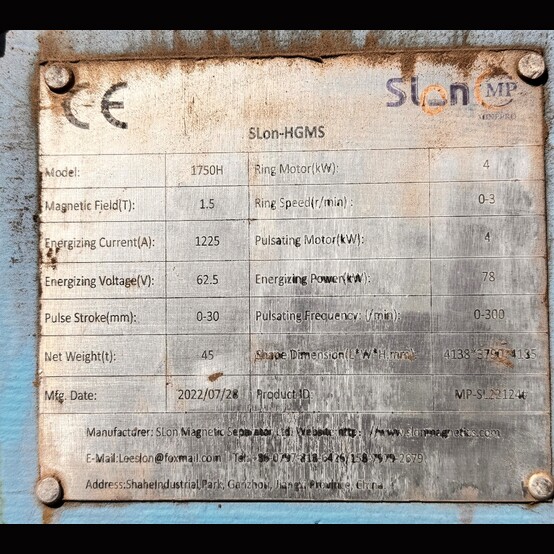 CE
SLon MP
MINEPRO
SLon-HGMS
Model: 1750H Ring Motor(kW): 4
Magnetic Field(T): 1.5 Ring Speed(r/min) : 0-3
Energizing Current(A): 1225 Pulsating Motor(kW): 4
Energizing Voltage(V): 62.5 Energizing Power(kW): 78
Pulse Stroke(mm): 0-30 Pulsating Frequency: (/min): 0-300
Net Weight(t): 45 Shape Dimension(L*W*H,mm)
Mfg. Date: Product ID:
Manufacturer: SLon Magnetic Separator Ltd. Website: http://www.slonmagnetics.com
E-Mail:Leeslon@foxmail.com Tel:
Address:Shahe Industrial Park, Ganzhou, Jiangxi Province, China